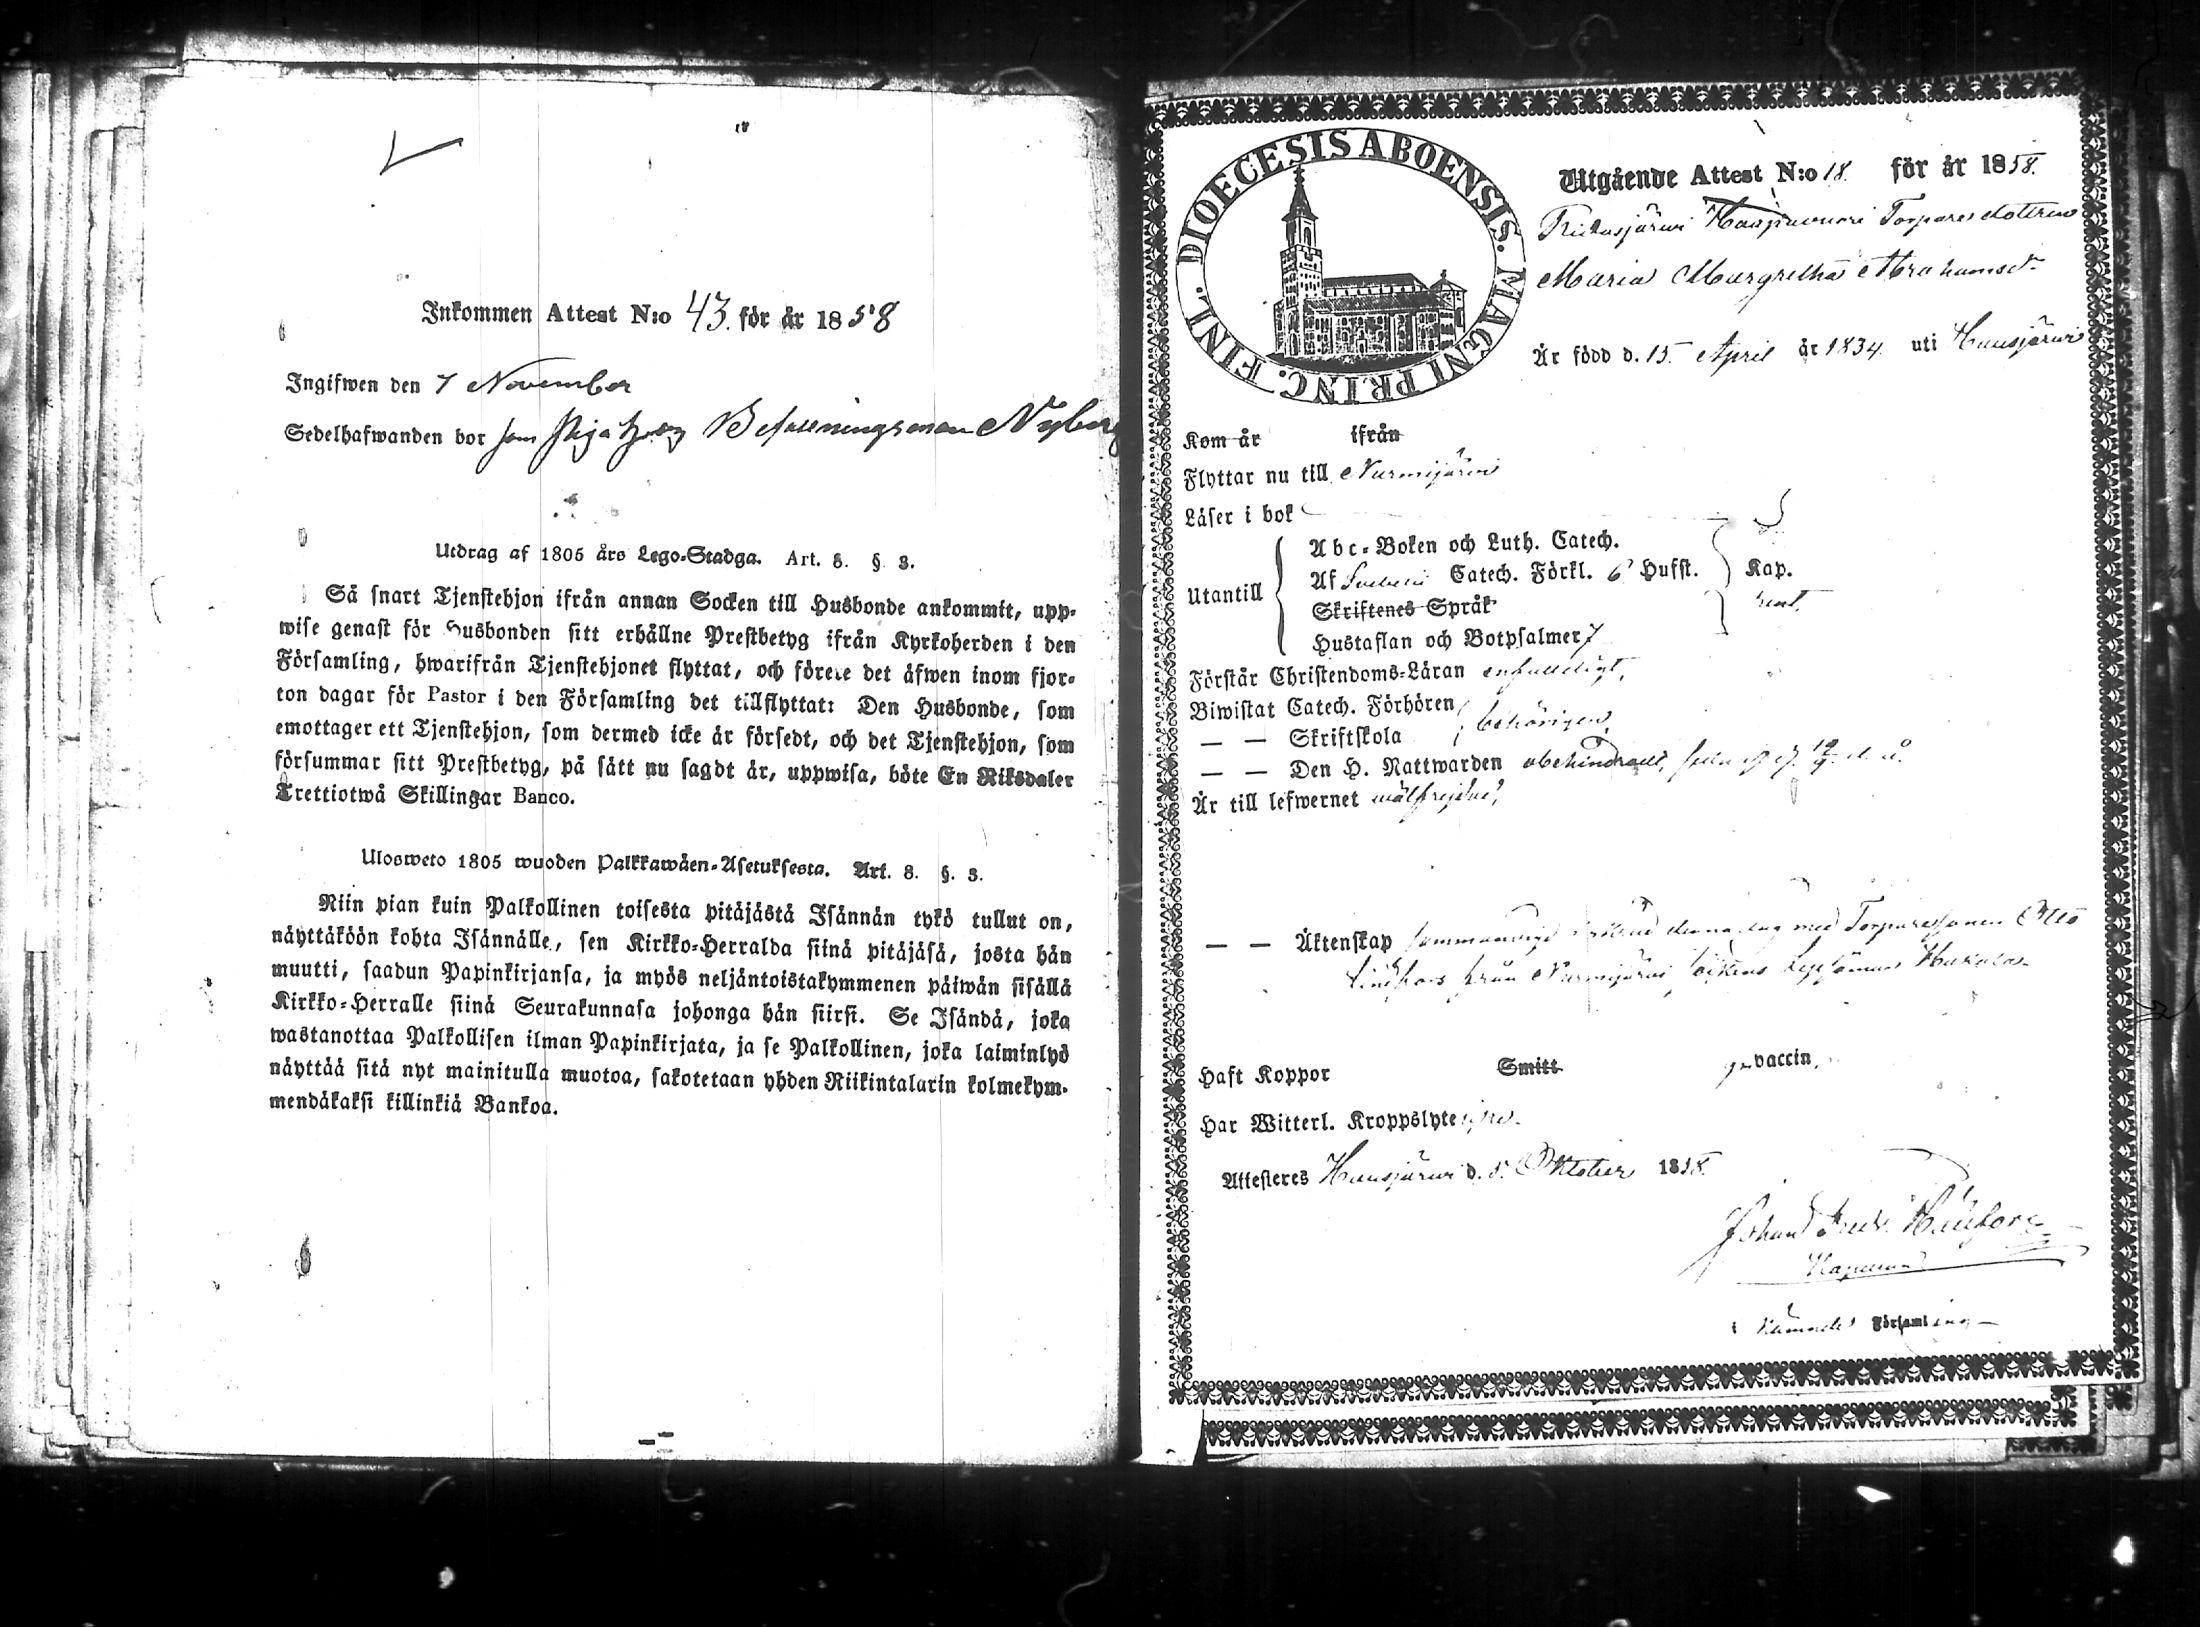 Inkommen Attest N:o 43. för år 1858
Ingifwen den 7 November
Sedelhafwanden bor som piga hos Befallningsman Nyberg
Utdrag af 1805 års Lego-Stadga. Art. 8. §. 3.
Så snart Tjenstehjon ifrån annan Socken till Husbonde ankommit, upp-
wise genast för Husbonden sitt erhållne Prestbetyg ifrån Kyrkoherden i den
Församling, hwarifrån Tjenstehjonet flyttat, och förete det äfwen inom fjor-
ton dagar för Pastor i den Församling det tillflyttat: Den Husbonde, som
emottager ett Tjenstehjon, som dermed icke är försedt, och det Tjenstehjon, som
försummar sitt Prestbetyg, på sätt nu sagdt är, uppwisa, böte En Riksdaler
Trettiotwå Skillingar Banco.
Ulosweto 1805 wuoden Palkkawäen-Asetuksesta. Art. 8. §. 3.
Niin pian kuin Palkollinen toisesta pitäjästä Isännän tykö tullut on,
näyttäköön kohta Isännälle, sen Kirkko-Herralda siinä pitäjäsä, josta hän
muutti, saadun Papinkirjansa, ja myös neljäntoistakymmenen päiwän sisällä
Kirkko-Herralle siinä Seurakunnasa johonga hän siirsi. Se Isändä, joka
wastanottaa Palkollisen ilman Papinkirjata, ja se Palkollinen, joka laiminlyö
näyttää sitä nyt mainitulla muotoa, sakotetaan yhden Riikintalarin kolmekym-
mendäkaksi killinkiä Bankoa.
DIOECESIS ABOENSIS. MAGNI PRINC. FINL.
Utgående Attest N:o 18. för år 1858.
Haapawuori Torparedottren
Maria Margretha Abrahamsd:r
Är född d. 15. April år 1834. uti Hausjärwi
Kom år ifrån
Flyttar nu till Nurmijärwi
Läser i bok
Abc-Boken och Luth. Catech.
Utantill Af Svebelii Catech. Förkl. 6 Hufst. Kap.
Skriftenes Språk
Hustaflan och Botpsalmer 7
Förstår Christendoms-Läran enfaldeligt,
Biwistat Catech. Förhören
— — Skriftskola behörigen,
— — Den H. Nattwarden obehindrad,
Är till lefwernet wälfrejdad,
— — Äktenskap denna dag med Torparesonen Otto
Lindfors från Nurmijärwi
Haft Koppor Smitt vaccin.
Har Witterl. Kroppslyte
Attesteres Hausjärwi d. 5. Oktober 1858.
Johan
Kapellan
i nämnde Församling